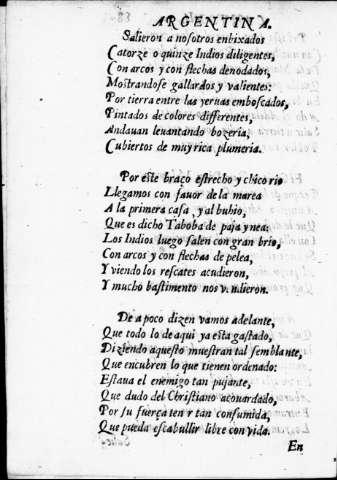 ARGENTINA.
Salieron a nosotros enbixados
Catorze o quinze Indios diligentes,
Con arcos y con flechas denodados,
Mostrandose gallardos y valientes:
Por tierra entre las yeruas emboscados,
Pintados de colores differentes,
Andauan leuantando bozeria,
Cubiertos de muy rica plumeria.
Por este braço estrecho y chico rio
Llegamos con fauor de la marea
A la primera casa, y al buhio,
Que es dicho Taboba de paja y nea:
Los Indios luego salen con gran brio,
Con arcos y con flechas de pelea,
Y viendo los rescates acudieron,
Y mucho bastimento nos v. ndieron.
De a poco dizen vamos adelante,
Que todo lo de aqui ya esta gastado,
Diziendo aquesto muestran tal semblante,
Que encubren lo que tienen ordenado:
Estaua el enemigo tan pujante,
Que dudo del Christiano acouardado,
Por su fuerça ten r tan consumida,
Que pueda escabullir libre con vida.
En